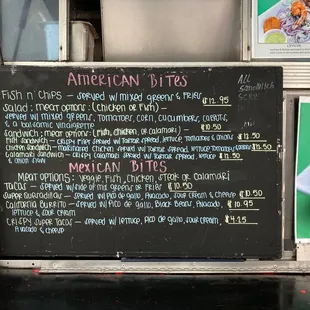 American Bites
Fish n' Chips - served w/ mixed greens & fries $12.95
Salad: meat options: (chicken or fish) -
served w/ mixed greens, tomatoes, corn, cucumbers, carrots,
& a balsamic vinaigrette $10.50
Sandwich: meat options: (fish, chicken, or calamari)
Fish Sandwich - crispy fish served w/ tartar spread, lettuce, tomatoes & onions $12.50
Chicken Sandwich - chicken served w/ tartar spread, lettuce, tomatoes $12.50
Calamari Sandwich - crispy calamari served w/ tartar spread, lettuce $12.50
All
Sandwich
Mexican Bites
Meat Options: veggie, fish, chicken, steak or calamari
Tacos - served w/ side of mix greens or fries $10.50
Super Quesadilla - served w/ pico de gallo, avocado, sour cream & ketchup $10.50
California Burrito - served w/ pico de gallo, black beans, avocado, $10.95
lettuce & sour cream
Crispy Super Tacos - served w/ lettuce, pico de gallo, sour cream, $4.25
avocado & ketchup